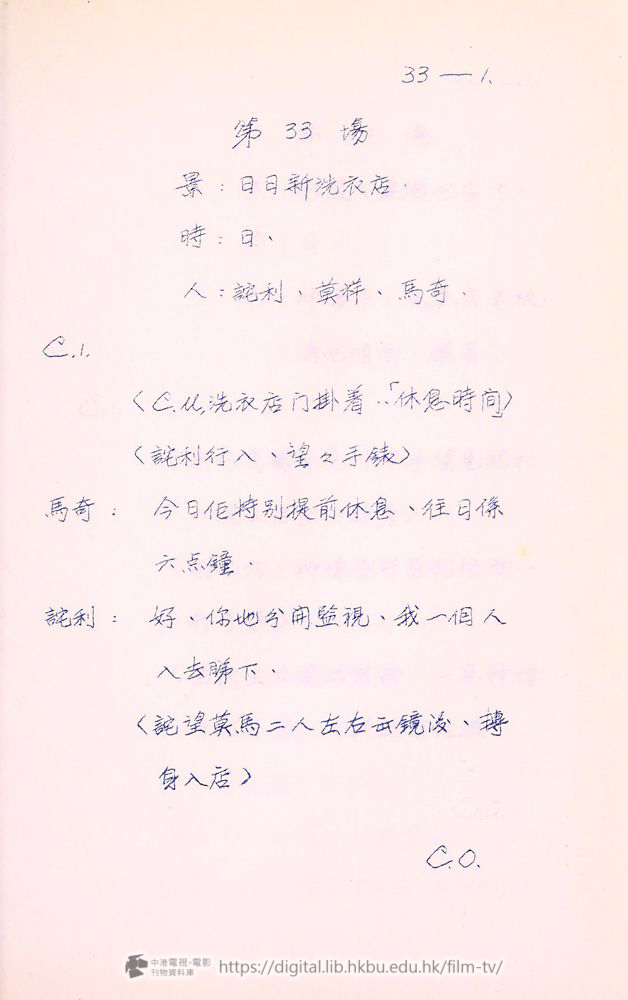 33 — 1.
第 33 場
景：日日新洗衣店.
時：日、
人：詫利、莫祥、馬奇、
C.1.
〈C.U.洗衣店门掛着..「休息時间」〉
〈詫利行入、望々手錶〉
馬奇： 今日佢特别提前休息、往日係
六点鐘、
詫利： 好、你地分開監視、我一個人
入去睇下、
〈詫望莫馬二人左右出鏡後、轉
身入店〉
C.O.
中港電視•電影
刊物資料庫
https://digital.lib.hkbu.edu.hk/film-tv/